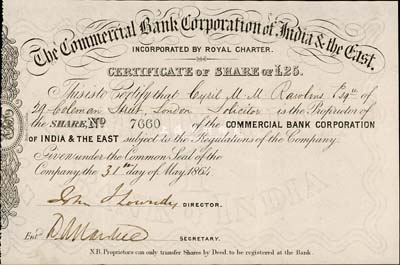 The Commercial Bank Corporation of India & the East.
INCORPORATED BY ROYAL CHARTER.
CERTIFICATE OF SHARE OF £25.
This is to Certify that Cyril M. M. Rawlins Esqre. of
29 Coleman Street, London Solicitor is the Proprietor of
the SHARE, No 7660 of the COMMERCIAL BANK CORPORATION
OF INDIA & THE EAST subject to the Regulations of the Company.
Given under the Common Seal of the
Company, the 31st day of May 1864
DIRECTOR.
Entd
SECRETARY.
N.B. Proprietors can only transfer Shares by Deed, to be registered at the Bank.